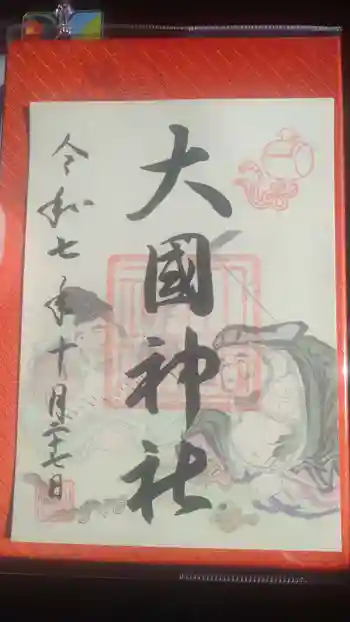 大國神社
令和七年十月二十七日